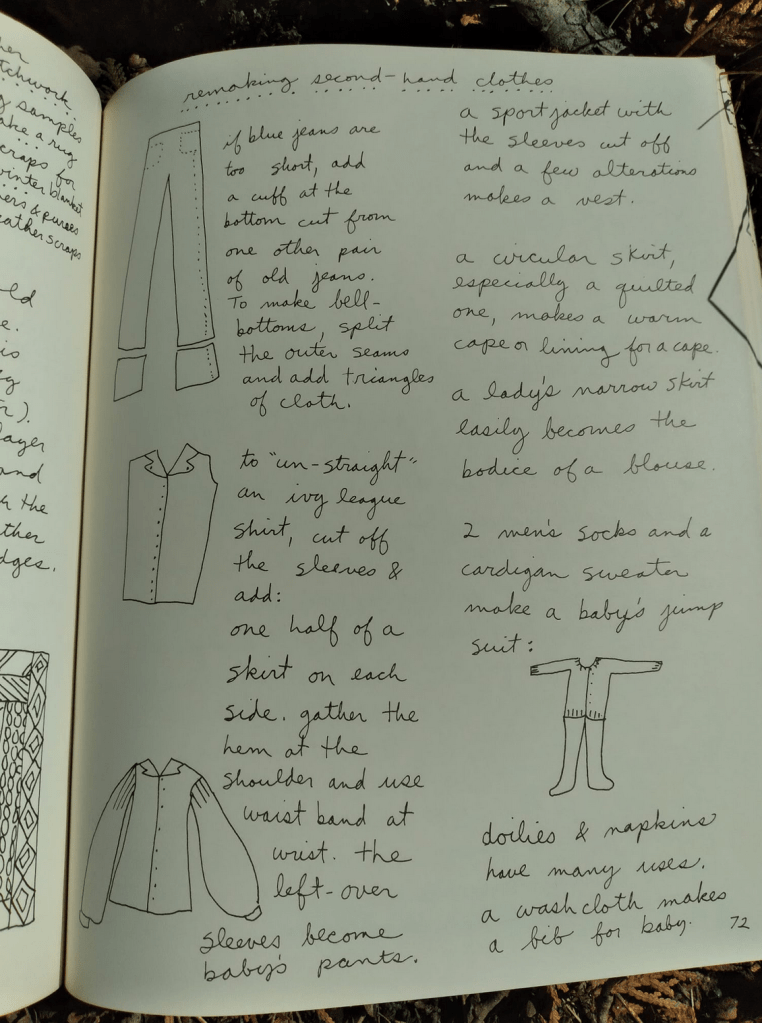 tchwork
samples
ake a rug
scraps for
winter blanket
& purses
eather scraps
ld
e.
is
layer
and
the
ther
dges.
remaking second-hand clothes
if blue jeans are
too short, add
a cuff at the
bottom cut from
one other pair
of old jeans.
To make bell-
bottoms, split
the outer seams
and add triangles
of cloth.
to "un-straight"
an ivy league
shirt, cut off
the sleeves &
add:
one half of a
skirt on each
side. gather the
hem at the
shoulder and use
waist band at
wrist. the
left-over
sleeves become
baby's pants.
a sport jacket with
the sleeves cut off
and a few alterations
makes a vest.
a circular skirt,
especially a quilted
one, makes a warm
cape or lining for a cape.
a lady's narrow skirt
easily becomes the
bodice of a blouse.
2 men's socks and a
cardigan sweater
make a baby's jump
suit:
doilies & napkins
have many uses.
a washcloth makes
a bib for baby.
72